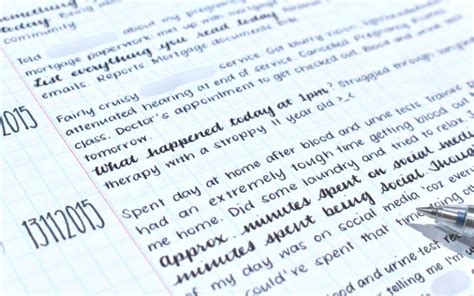 something
today
community
Told about my pregnancy
mortgage paperwork met with mortgage
List everything you read today
emails. Reports Mortgage documents.
2015
Fairly cruisy service. Got blurry
attenuated hearing at end of service. Cancelled Pregnancy Pilates
class. Doctor's appointment to get checked out. Blood and urine
tomorrow.
What happened today at 1pm? Struggled through
therapy with a stroppy 11 year old >_<
13112015
Spent day at home after blood and urine tests.
had an extremely tough time getting blood out
me home. Did some laundry and tried to relax.
Approx minutes spent on social media
minutes spent being social
of my day was on social media 'coz
could've spent that time doing
and urine test